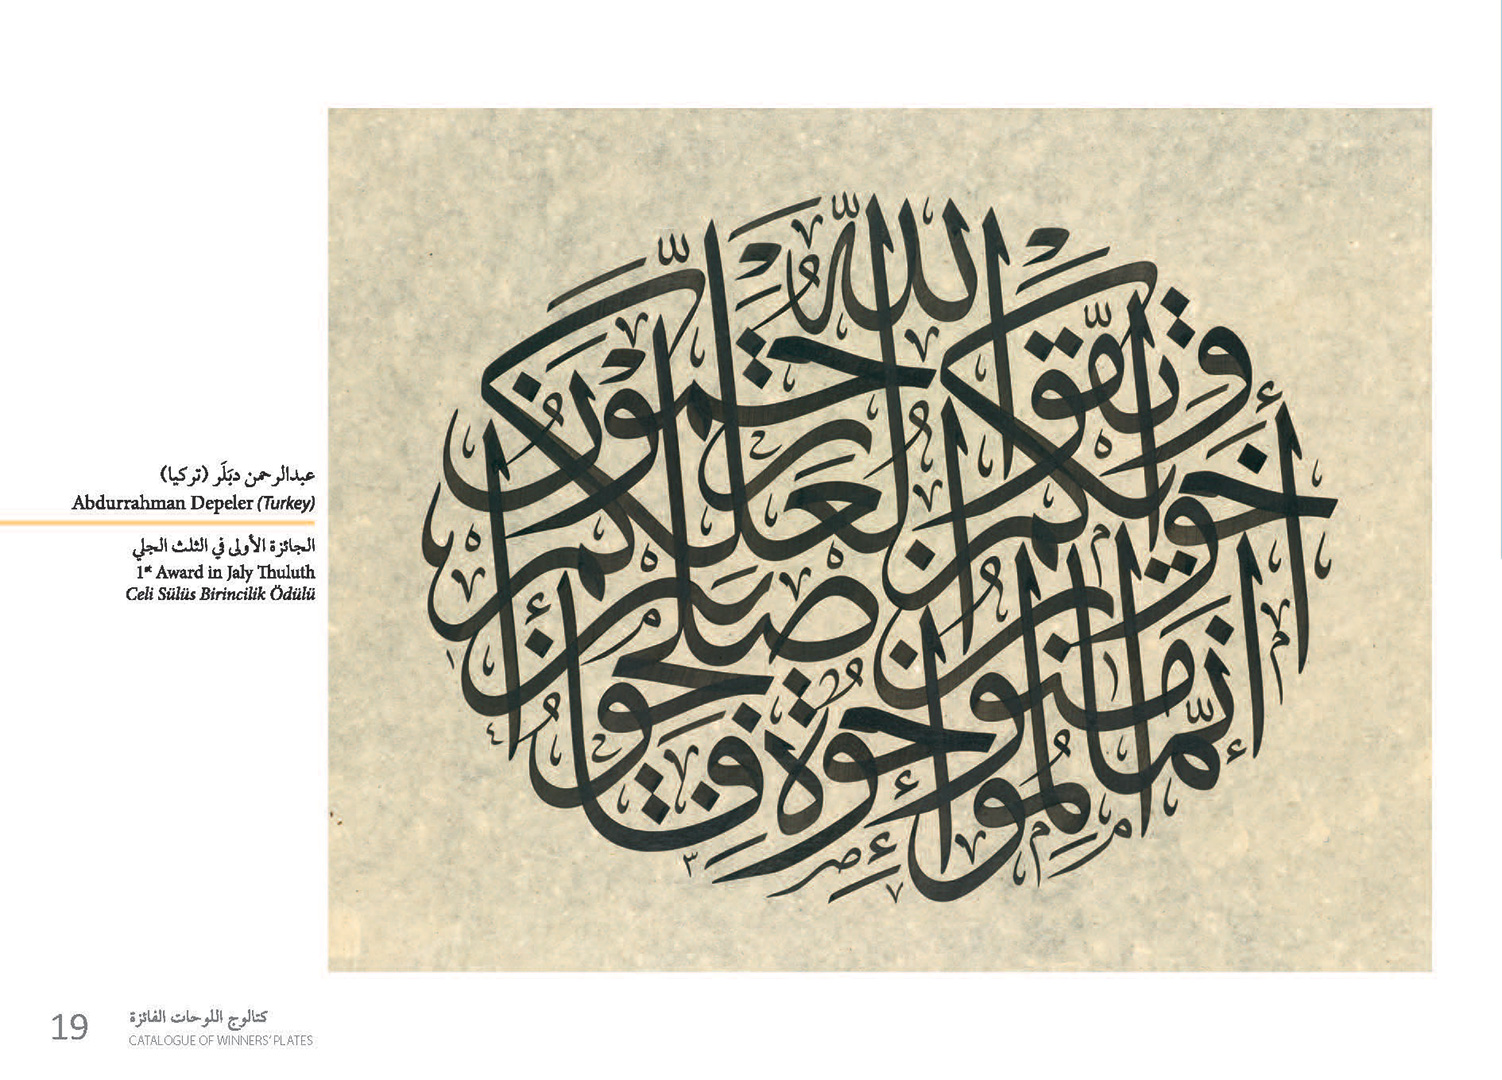 إِنَّمَا الْمُؤْمِنُونَ إِخْوَةٌ فَأَصْلِحُوا بَيْنَ أَخَوَيْكُمْ وَاتَّقُوا اللَّهَ لَعَلَّكُمْ تُرْحَمُونَ
عبدالرحمن دبَلَر (تركيا)
Abdurrahman Depeler (Turkey)
الجائزة الأولى في الثلث الجلي
1st Award in Jaly Thuluth
Celi Sülüs Birincilik Ödülü
19
كتالوج اللوحات الفائزة
CATALOGUE OF WINNERS' PLATES